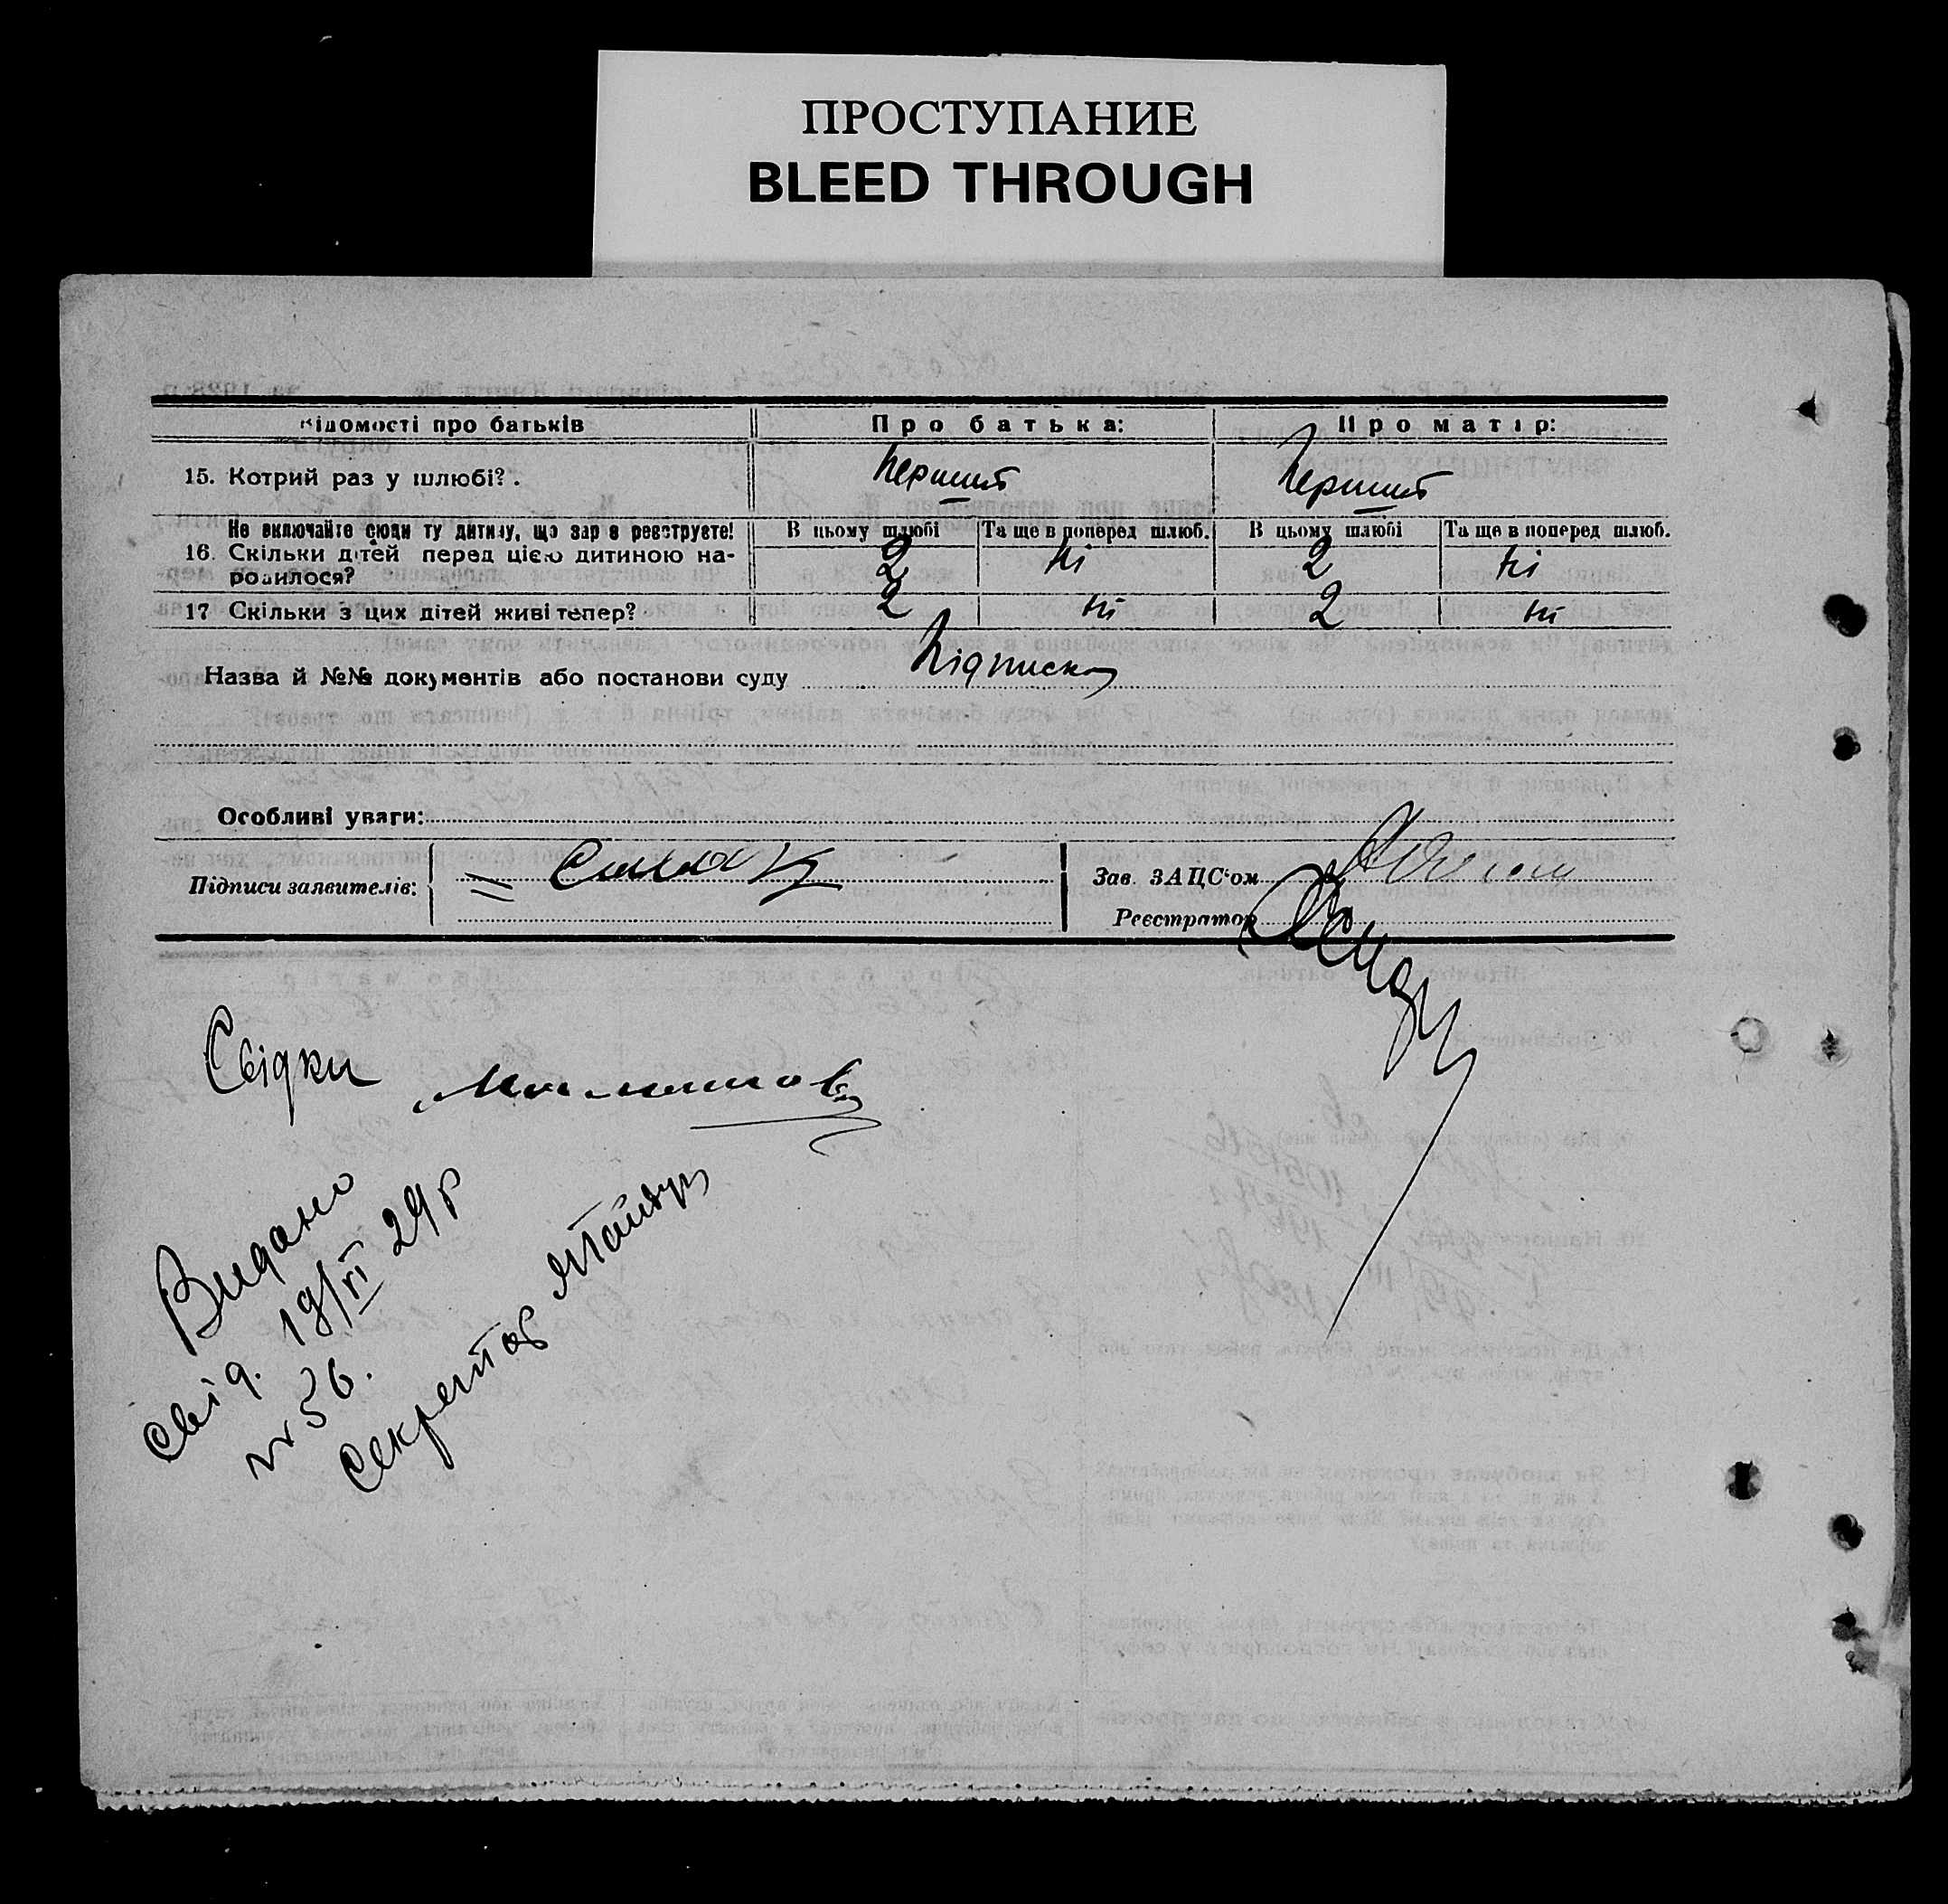 ПРОСТУПАНИЕ
BLEED THROUGH
Відомості про батьків
Про батька:
Про матір:
15. Котрий раз у шлюбі?.
перший
перший
Не включайте сюди ту дитину, що зараз реєструєте!
В цьому шлюбі
Та ще в поперед шлюб.
В цьому шлюбі
Та ще в поперед шлюб.
16. Скільки дітей перед цією дитиною на-
родилося?
2
ні
2
ні
17 Скільки з цих дітей живі тепер?
2
ні
2
ні
Назва й №№ документів або постанови суду
Підписка
Особливі уваги:
Підписи заявителів:
Зав. ЗАЦС‘ом
Реєстратор
Свідки
Видано
свід. 19/VI 29р
№ 56.
Секретар